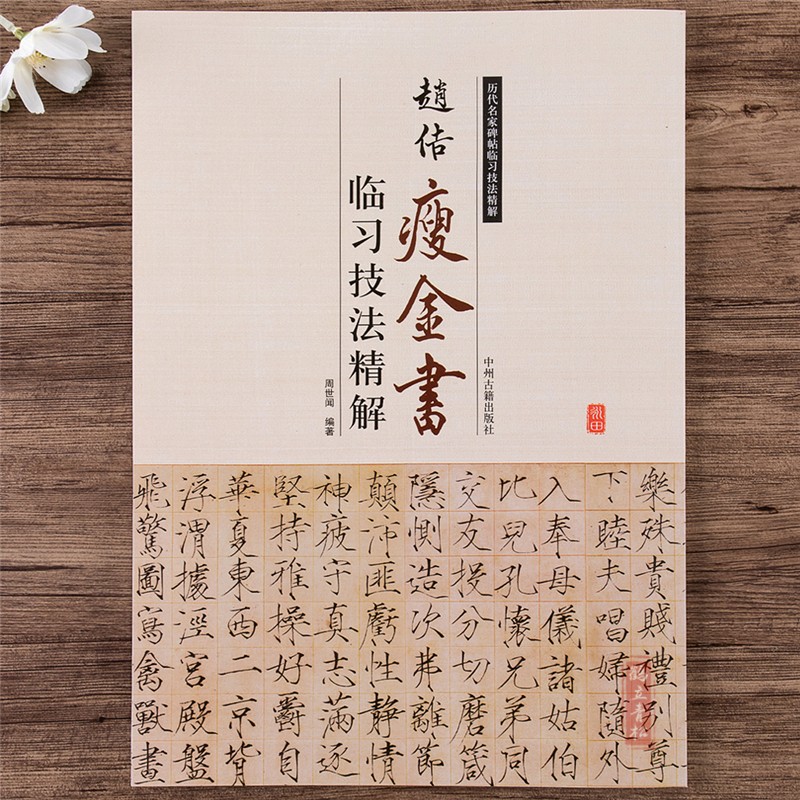 历代名家碑帖临习技法精解
中州古籍出版社
趙佶
瘦金書
临习技法精解
周世闻 编著
樂殊貴賤禮別尊
下睦夫唱婦隨外
入奉母儀諸姑伯
比兒孔懷兄弟同
交友投分切磨箴
隱惻造次弗離節
顛沛匪虧性靜情
神疲守真志滿逐
堅持雅操好爵自
華夏東西二京背
浮渭據涇宮殿盤
飛驚圖寫禽獸畫